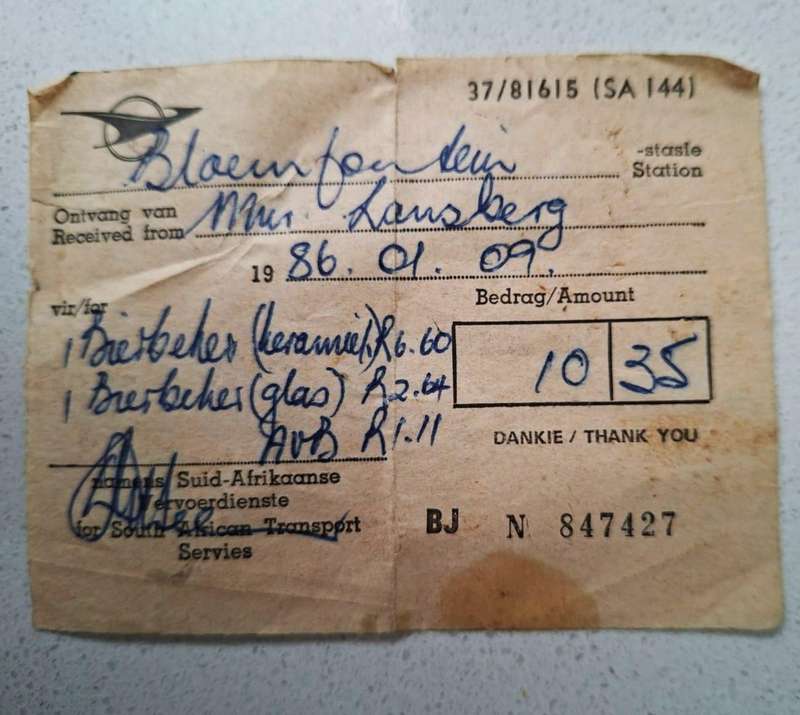 37/81615 (SA 144)
Bloemfontein -stasie
Station
Ontvang van
Received from Mnr. Lansberg
19 86. 01. 09.
vir/for
Bedrag/Amount
1 Bierbeker (keramiek) R6.60
10 | 35
1 Bierbeker (glas) R2.64
AVB R1.11
DANKIE / THANK YOU
namens Suid-Afrikaanse
Vervoerdienste
for South African Transport
Servies
BJ N 847427